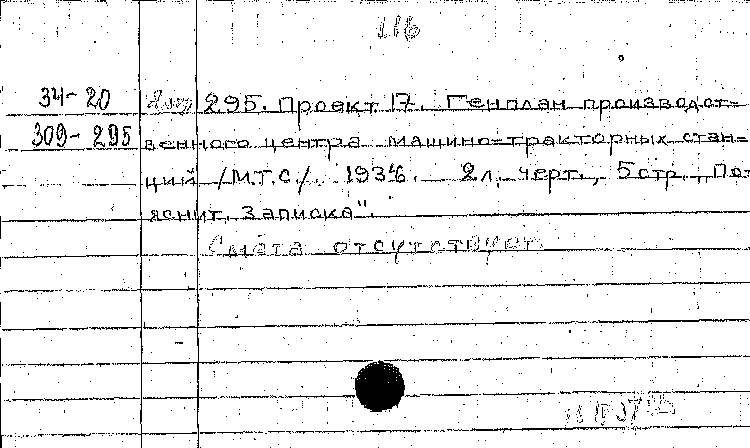 116
34-20 295. Проект 17. Генплан производст-
309-295 венного центра машино-тракторных стан-
ций /М.Т.С./. 1934г. 2 л. черт., 5 стр. „По-
яснит. записка".
Смета отсутствует.